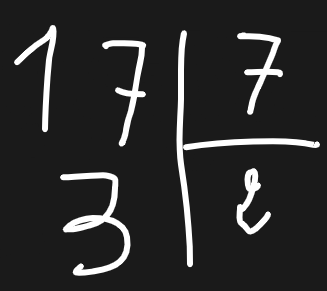 17 7
3 2